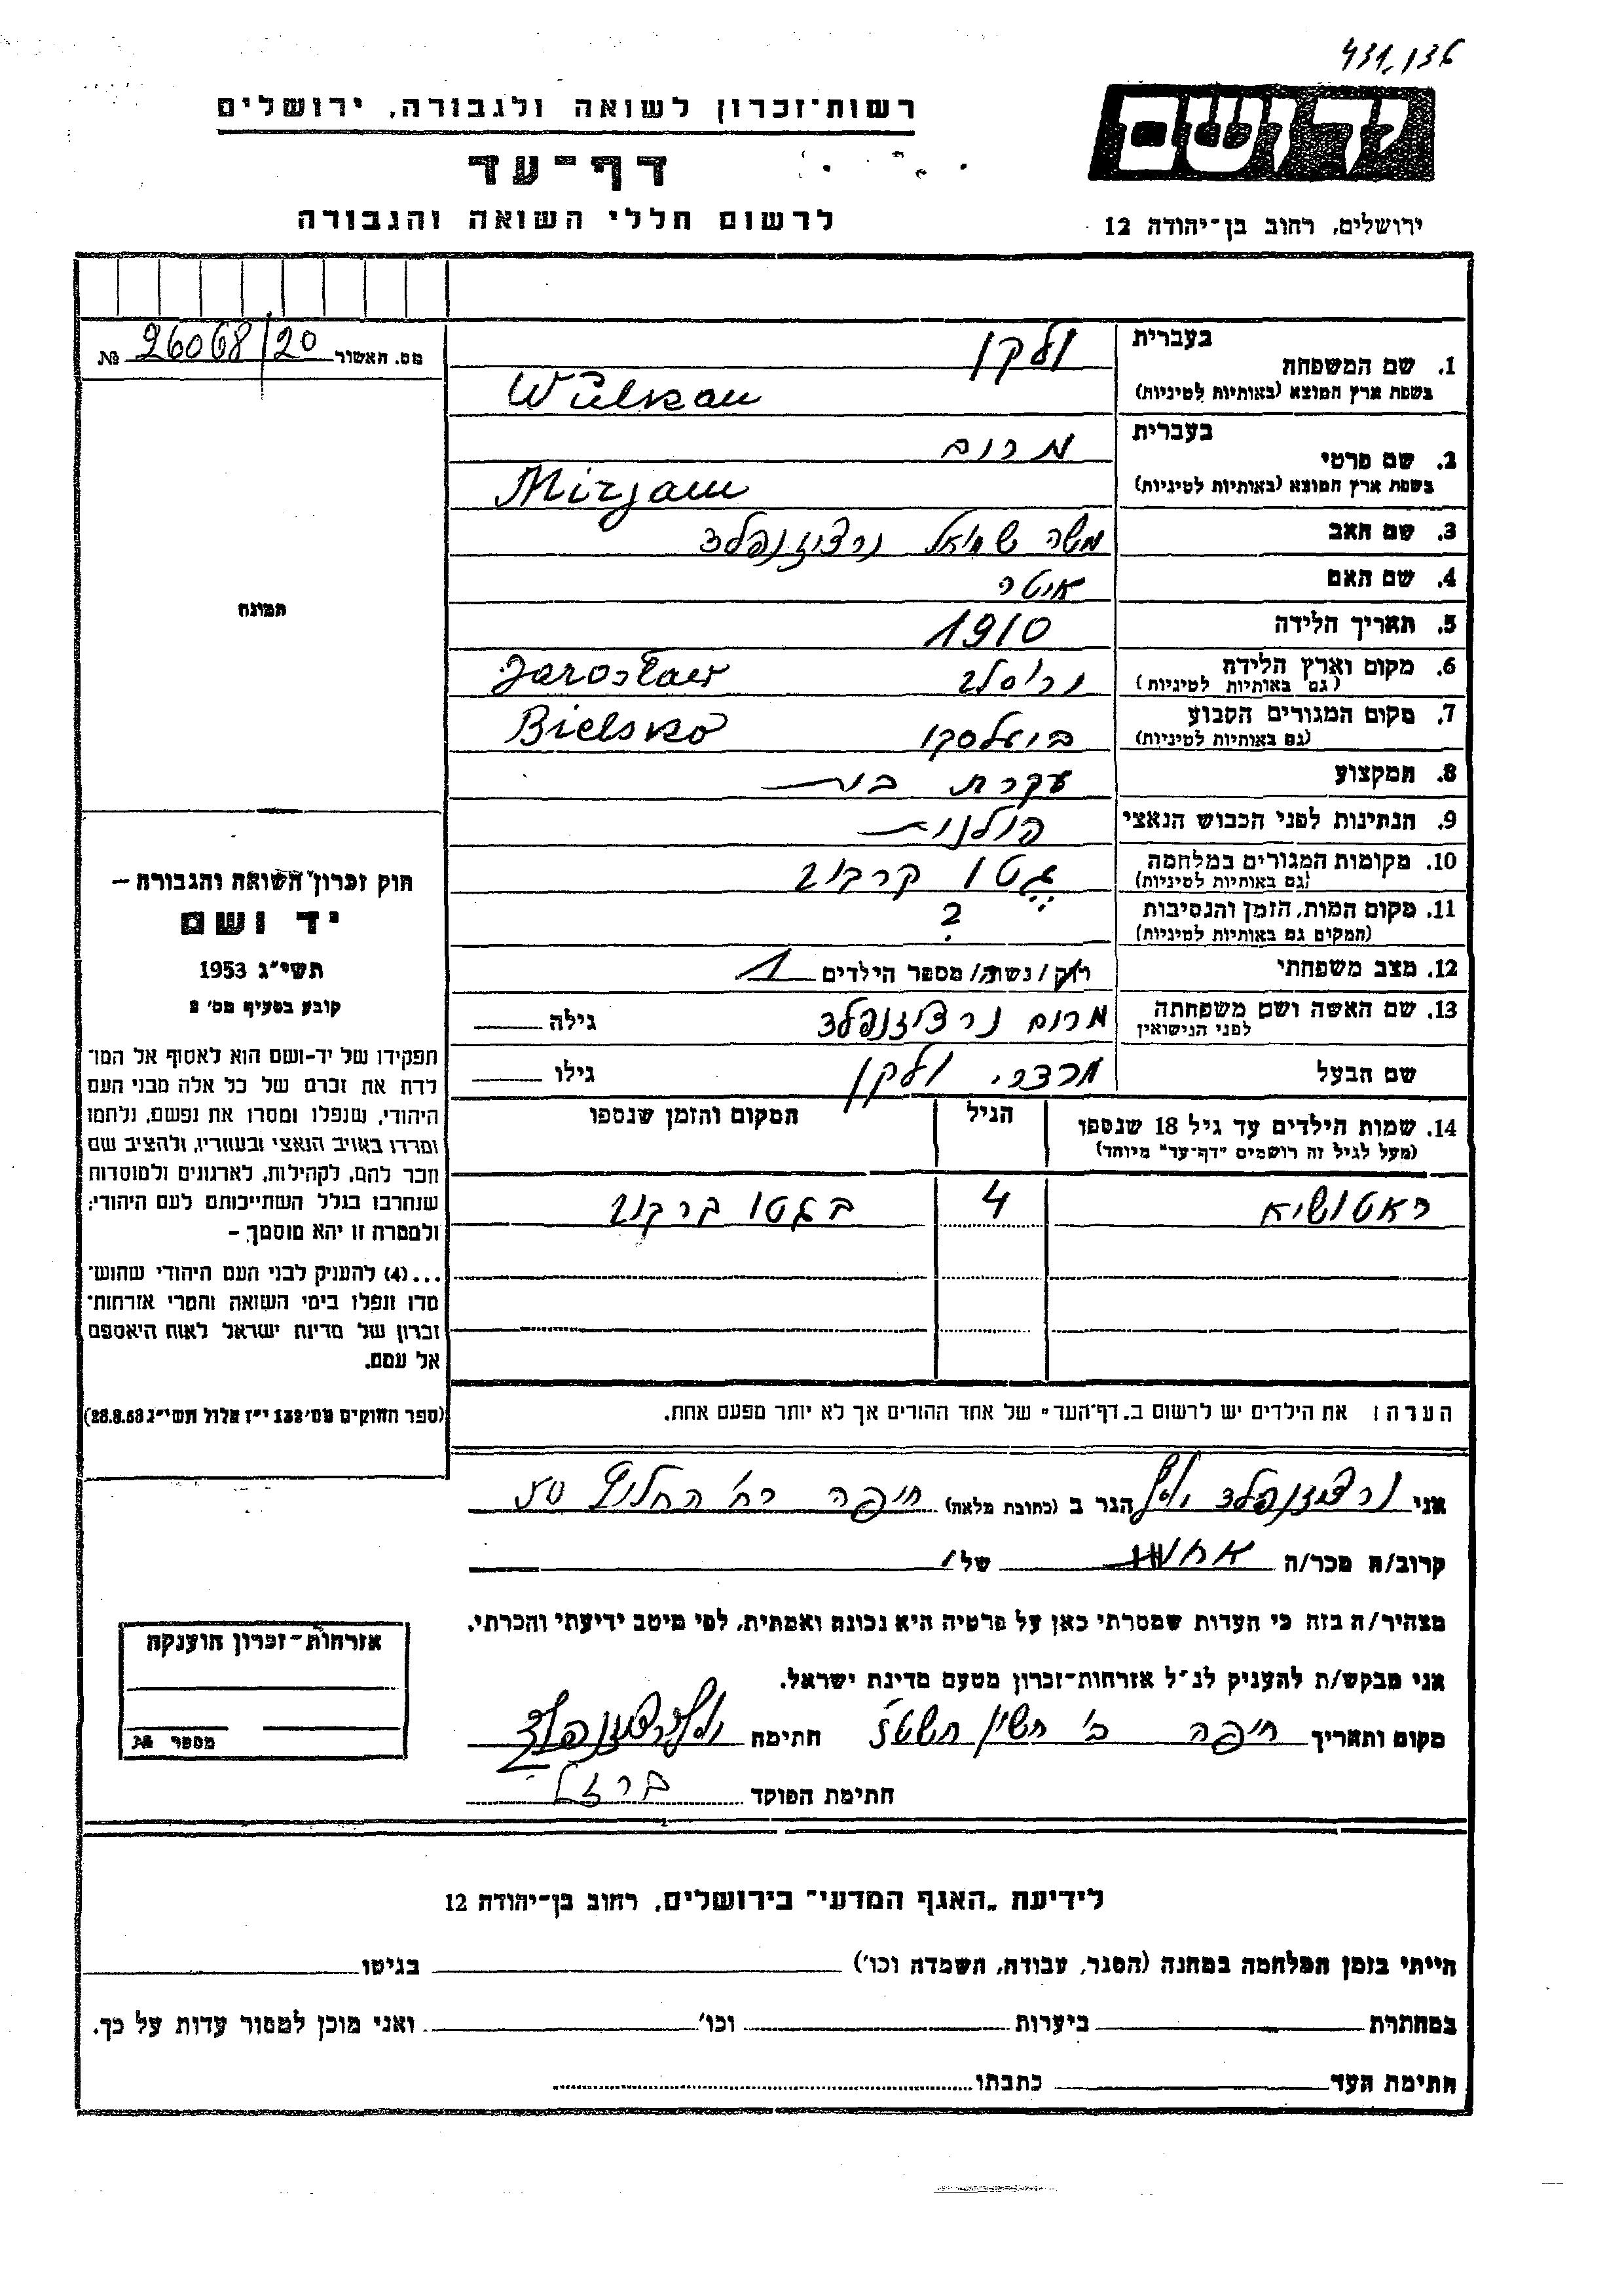 431/136
רשות־זכרון לשואה ולגבורה, ירושלים
יד ושם
דף־עד
לרשום חללי השואה והגבורה
ירושלים, רחוב בן־יהודה 12
מס. תאשור 26068/20 №
בעברית
1. שם המשפחה ולקן
בשפת ארץ המוצא (באותיות לטיניות) Wülkan
בעברית
2. שם פרטי מרים
בשפת ארץ המוצא (באותיות לטיניות) Mirjam
3. שם האב משה שמואל
4. שם האם אוטה
5. תאריך הלידה 1910
6. מקום וארץ הלידה ירוסלב Jarosław
(גם באותיות לטיניות)
7. מקום המגורים הקבוע ביאלסקו Bielsko
(גם באותיות לטיניות)
8. המקצוע עקרת בית
9. הנתינות לפני הכבוש הנאצי פולנית
10. מקומות המגורים במלחמה גטו קרקוב
(גם באותיות לטיניות)
11. מקום המות, הזמן והנסיבות ?
(המקום גם באותיות לטיניות)
12. מצב משפחתי רוק/נשוי/ה/ מספר הילדים 1
13. שם האשה ושם משפחתה מרים גילה
לפני הנישואין
שם הבעל מרדכי ולקן גילו
14. שמות הילדים עד גיל 18 שנספו הגיל המקום והזמן שנספו
(מעל לגיל זה רושמים "דף־עד" מיוחד)
4 בגטו קרקוב
הערה: את הילדים יש לרשום ב„דף־העד" של אחד ההורים אך לא יותר מפעם אחת.
תמונה
חוק זכרון השואה והגבורה –
יד ושם
תשי"ג 1953
קובע בסעיף מס' 2
תפקידו של יד־ושם הוא לאסוף אל המו־
לדת את זכרם של כל אלה מבני העם
היהודי, שנפלו ומסרו את נפשם, נלחמו
ומרדו באויב הנאצי ובעוזריו, ולהציב שם
וזכר להם, לקהילות, לארגונים ולמוסדות
שנחרבו בגלל השתייכותם לעם היהודי;
ולמטרה זו יהא מוסמך –
...(4) להעניק לבני העם היהודי שהוש־
מדו ונפלו בימי השואה והמרי אזרחות־
זכרון של מדינת ישראל לאות היאספם
אל עמם.
(ספר החוקים מס' 132 י"ז אלול תשי"ג 28.8.53)
אני הגר ב (כתובת מלאה) חיפה רח' החלוץ 50
קרוב/ה מכר/ה של
מצהיר/ה בזה כי העדות שמסרתי כאן על פרטיה היא נכונה ואמתית, לפי מיטב ידיעתי והכרתי.
אני מבקש/ת להעניק לנ"ל אזרחות־זכרון מטעם מדינת ישראל.
מקום ותאריך חיפה ב' חשון תשט"ז חתימה
חתימת הפוקד ברזל
אזרחות־זכרון הוענקה
מספר №
לידיעת „האגף המדעי" בירושלים, רחוב בן־יהודה 12
הייתי בזמן המלחמה במחנה (הסגר, עבודה, השמדה וכו') בגיטו
במחתרת ביערות וכו' ואני מוכן למסור עדות על כך.
חתימת העד כתבתו